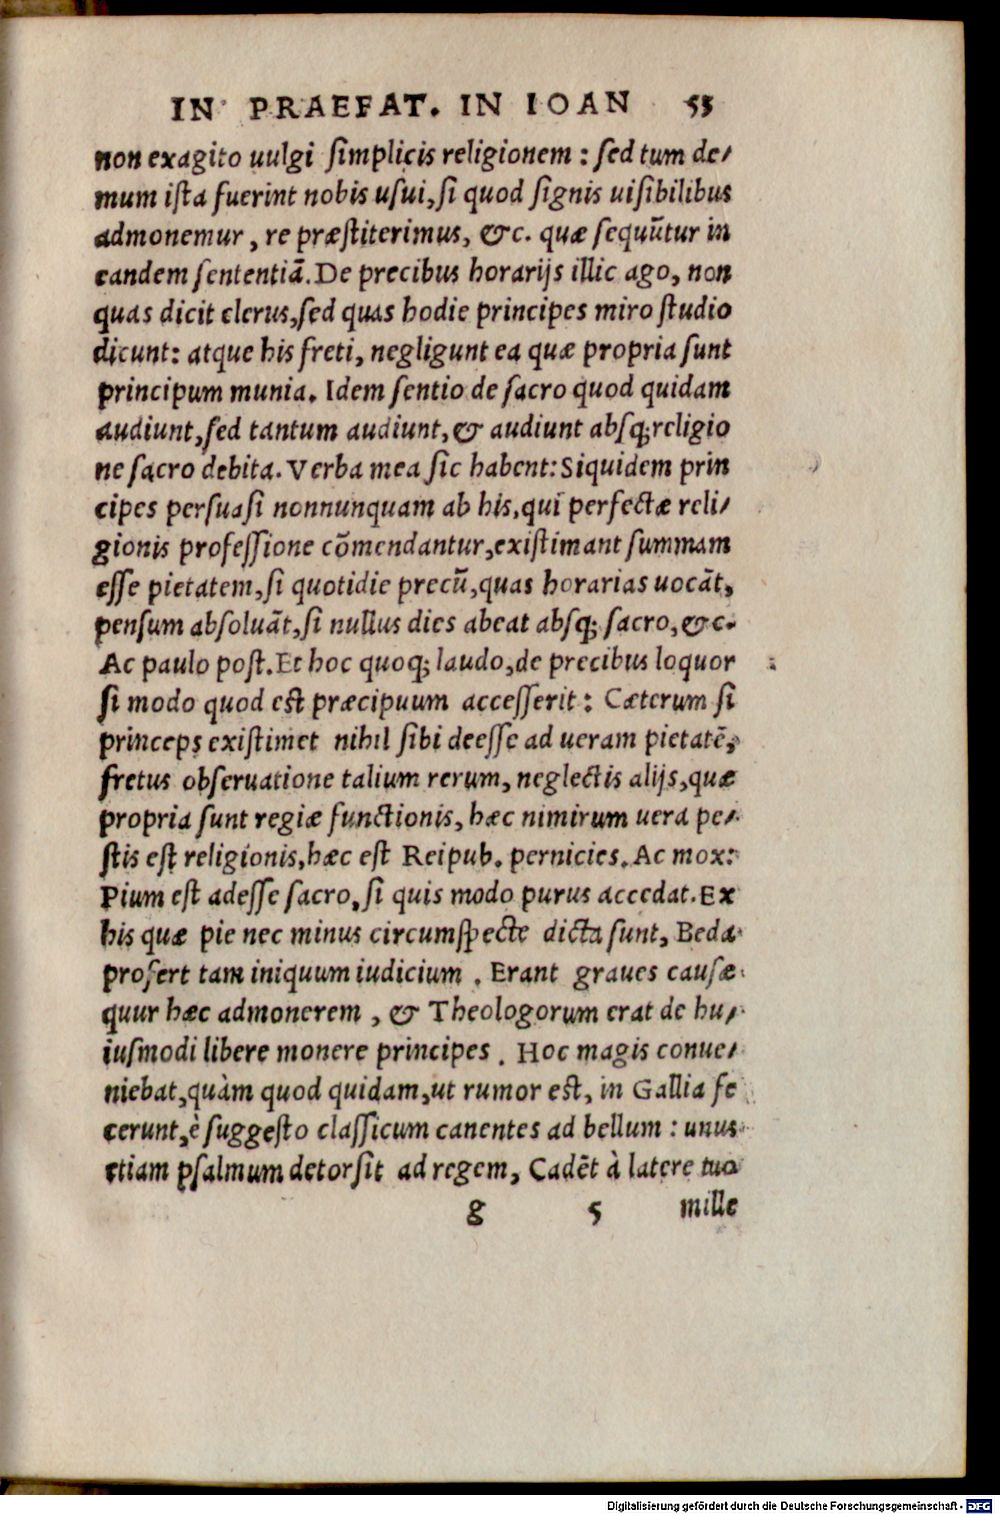 IN PRAEFAT. IN IOAN 55
non exagito uulgi simplicis religionem : sed tum de/
mum ista fuerint nobis usui, si quod signis uisibilibus
admonemur, re præstiterimus, &c. quæ sequũtur in
eandem sententiã. De precibus horarijs illic ago, non
quas dicit clerus, sed quas hodie principes miro studio
dicunt: atque his freti, negligunt ea quæ propria sunt
principum munia. Idem sentio de sacro quod quidam
audiunt, sed tantum audiunt, & audiunt absq; religio
ne sacro debita. Verba mea sic habent: Siquidem prin
cipes persuasi nonnunquam ab his, qui perfectæ reli/
gionis professione cõmendantur, existimant summam
esse pietatem, si quotidie precũ, quas horarias uocãt,
pensum absoluãt, si nullus dies abeat absq; sacro, &c.
Ac paulo post. Et hoc quoq; laudo, de precibus loquor
si modo quod est præcipuum accesserit : Cæterum si
princeps existimet nihil sibi deesse ad ueram pietatẽ,
fretus obseruatione talium rerum, neglectis alijs, quæ
propria sunt regiæ functionis, hæc nimirum uera pe/
stis est religionis, hæc est Reipub. pernicies. Ac mox:
Pium est adesse sacro, si quis modo purus accedat. Ex
his quæ pie nec minus circumspecte dicta sunt, Beda
profert tam iniquum iudicium . Erant graues causæ
quur hæc admonerem , & Theologorum erat de hu/
iusmodi libere monere principes . Hoc magis conue/
niebat, quàm quod quidam, ut rumor est, in Gallia fe
cerunt, è suggesto classicum canentes ad bellum : unus
etiam psalmum detorsit ad regem, Cadẽt à latere tuo
g 5 mille
Digitalisierung gefördert durch die Deutsche Forschungsgemeinschaft - DFG